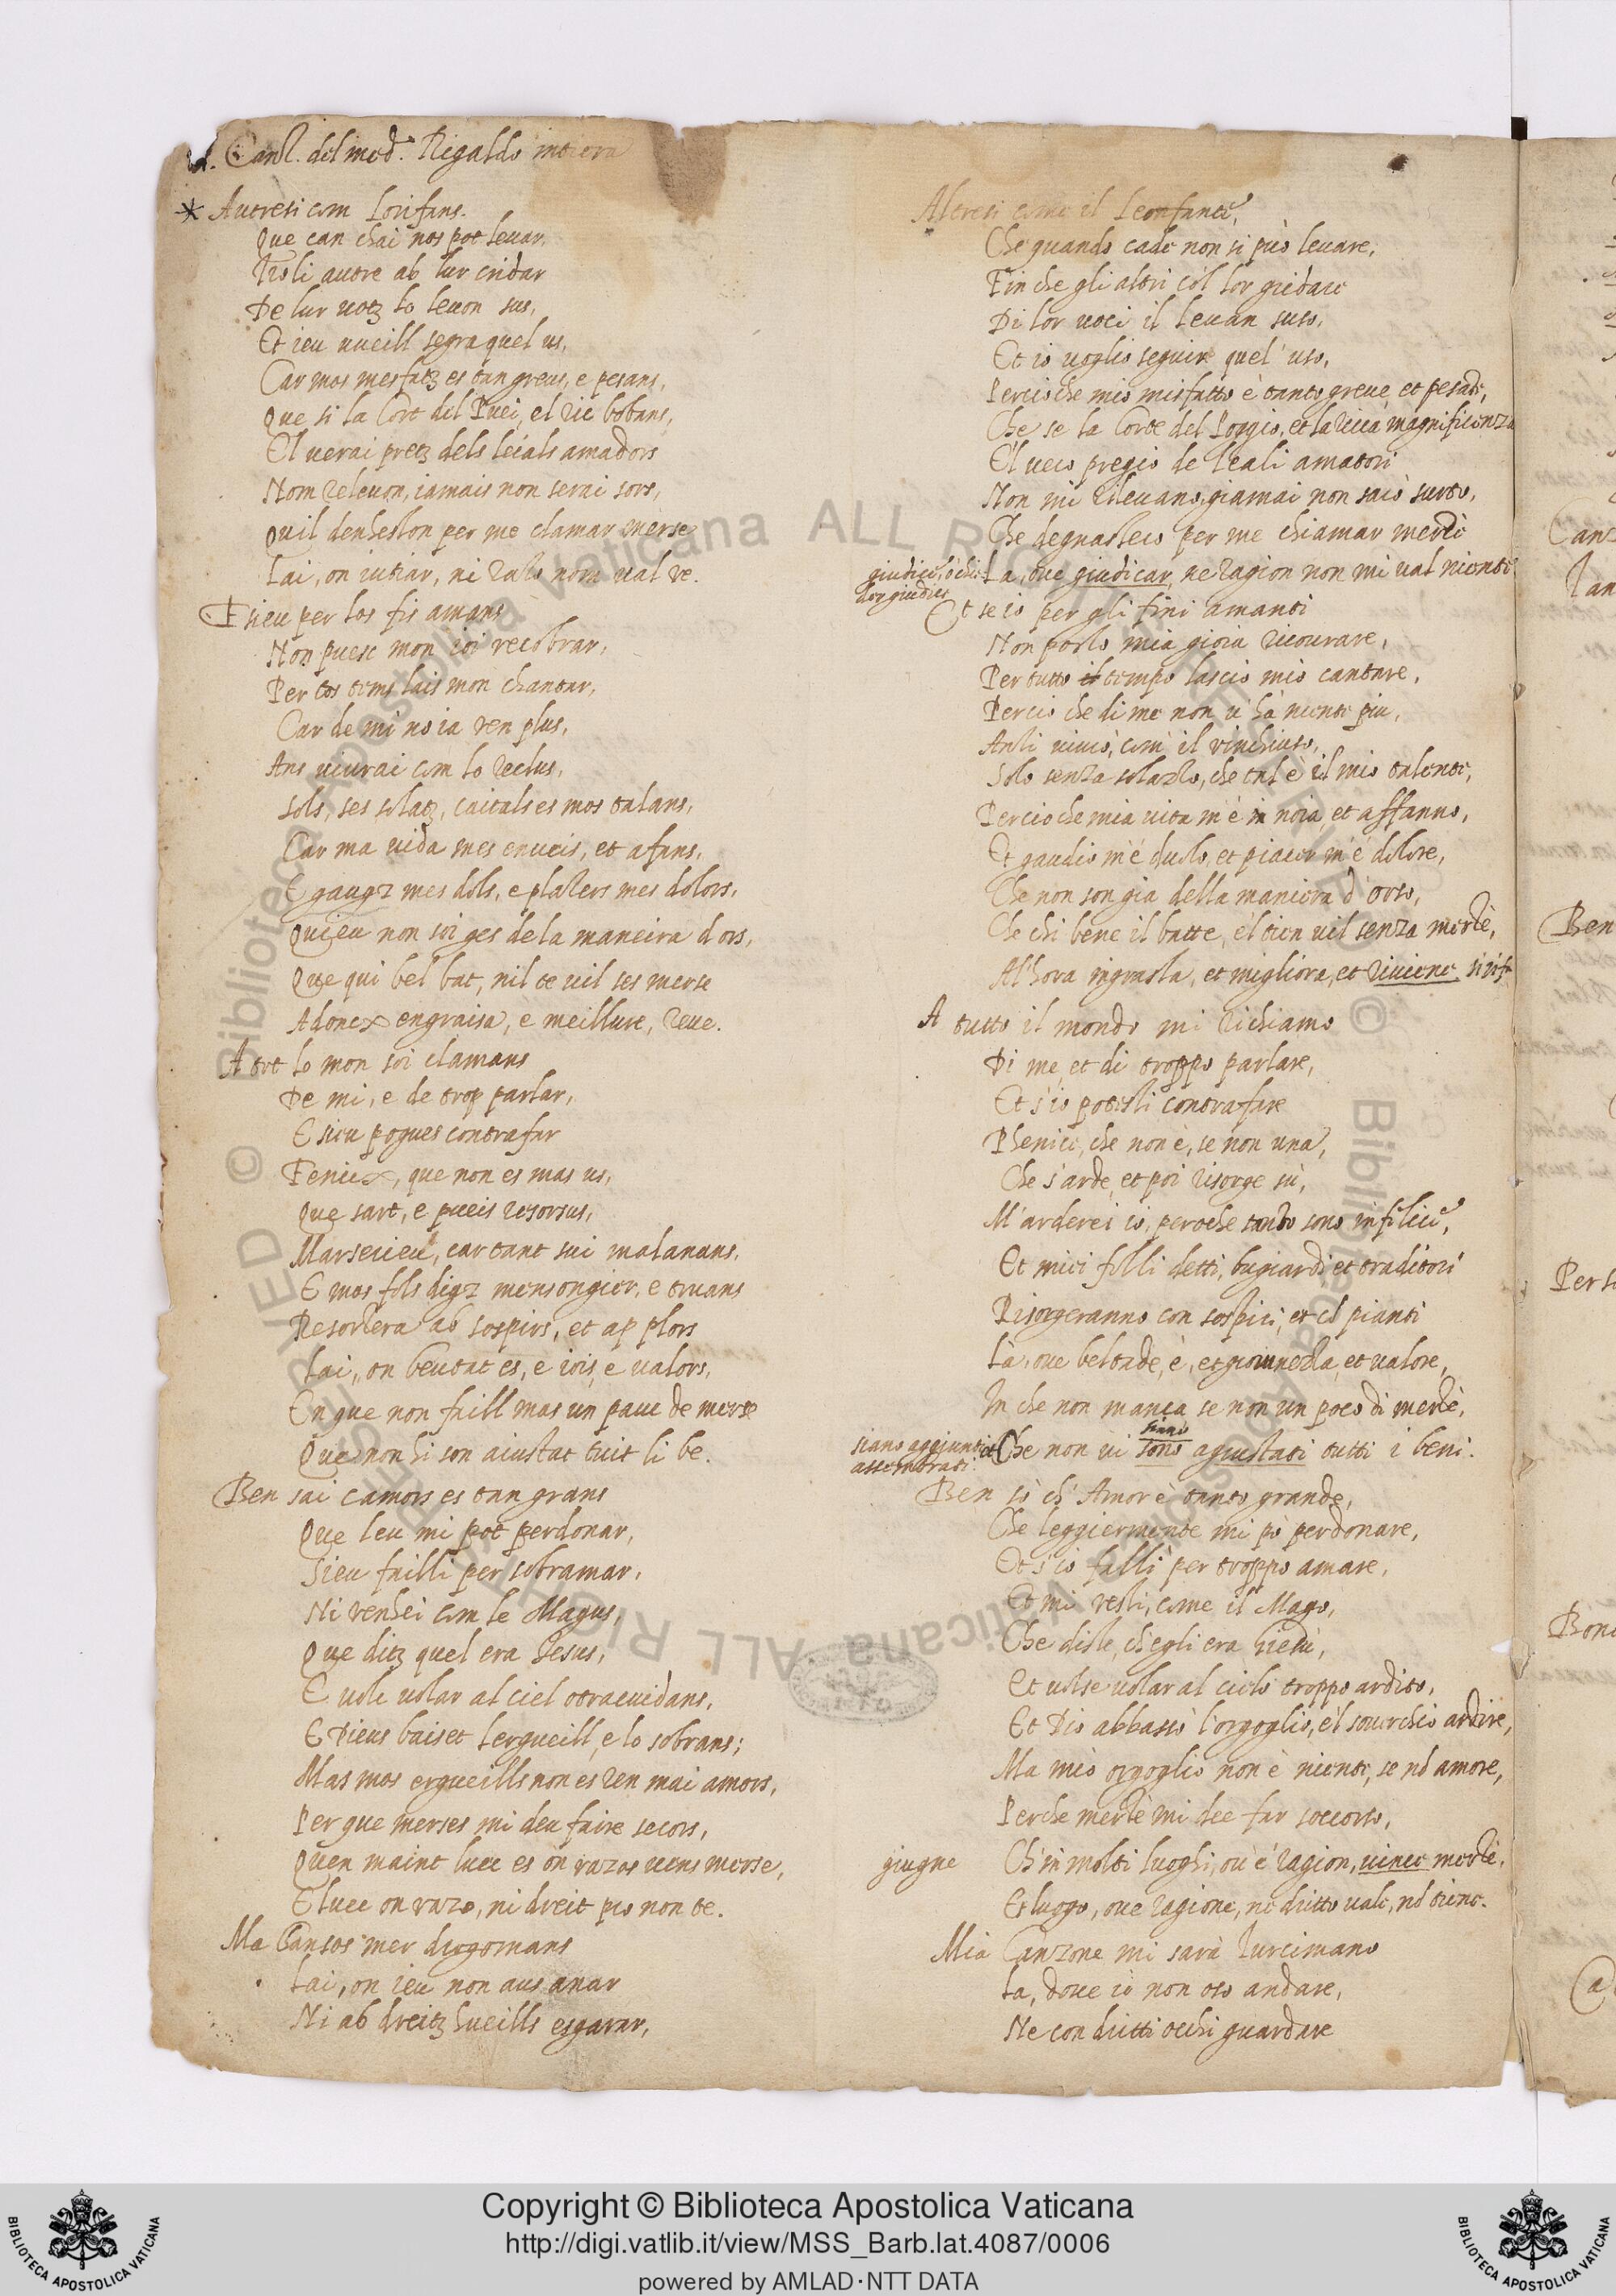 Canz. del med.º Rigaldo intiera
Autresi com Lorifans.
Que can chai nos pot leuar,
Tro li autre ab lur cridar
De lur uotz lo leuon sus,
Et ieu uueill segra quel us,
Car mos mesfatz es tan greus, e pesans,
Que si la Cort del Puei, el ric bobans,
El uerai pretz dels leials amadors
Nom releuon, iamais non serai sors,
Quil denhesson per me clamar merse
Lai, on iutiar, ni razo nom ual re.
E sieu per los fis amans
Non puesc mon ioi recobrar,
Per tos tems lais mon chantar,
Car de mi no ia ren plus,
Ans uiurai com lo reclus,
Sols, ses solatz, caitals es mos talans,
Car ma uida mes enueis, et afans,
E gaugz mes dols, e plazers mes dolors,
Quieu non soi ges de la maneira dors,
Que qui bel bat, nil te uil ses merse
Adoncx engraisa, e meillure, reue.
A tot lo mon soi clamans
De mi, e de trop parlar,
E sieu pogues contrafar
Fenicx, que non es mas us,
Que sart, e pueis resorsus,
Marserieu, car tant sui malanans,
E mos fols digz mensongier, e truans
Resorsera ab sospirs, et ap plors
Lai, on beutat es, e iois, e ualors,
En que non faill mas un pauc de merse
Que non hi son aiustat tuit li be.
Ben sai camors es tan grans
Que leu mi pot perdonar,
Sieu failli per sobramar,
Ni renhei com le Magus,
Que ditz quel era Iesus,
E uolc uolar al ciel otracuidans,
E Dieus baiset lergueill, e lo sobrans;
Mas mos ergueills non es ren mai amors,
Per que merses mi deu faire secors,
Quen maint luec es on razos uens merse,
E luec on razo, ni dreit pro non te.
Ma Cansos mer drogomans
Lai, on ieu non aus anar
Ni ab dreitz hueills esgarar,
Altresi come il Leonfante,
Che quando cade non si può leuare,
Fin che gli altri col lor gridare
Di lor uoci il leuan suso,
Et io uoglio seguire quel' uso,
Percioche mio misfatto è tanto greue, et pesante,
Che se la Corte del Poggio, et la ricca magnificenza
El uero pregio de leali amatori
Non mi rileuano, giamai non sarò surto,
Che degnassero per me chiamar merzè
La, oue giudicar, ne ragion non mi ual niente
Et se io per gli fini amanti
Non posso mia gioia ricourare,
Per tutto il tempo lascio mio cantare,
Percio che di me non u' hà niente piu,
Anzi uiurò, com' il rinchiuso,
Solo senza solazzo, che tal è il mio talento,
Percioche mia uita m'è in noia, et affanno,
Et gaudio m'è duolo, et piacer m'è dolore,
Che non son gia della maniera d'orso,
Che chi bene il batte, e'l tien uil senza merzè,
Al'hora ingrassa, et migliora, et riuiene
A tutto il mondo mi richiamo
Di me, et di troppo parlare,
Et s'io potessi contrafare
Phenice, che non è, se non una,
Che s'arde, et poi risorge sù,
M'arderei io, peroche tanto sono infelice,
Et miei folli detti, bugiardi et traditori
Risorgeranno con sospiri, et cō pianti
Là, oue beltade, è, et giouinezza, et ualore,
In che non manca se non un poco di merzè,
siano
siano aggiunti, et
assembrati.
Che non ui sono agiustati tutti i beni.
Ben sò ch' Amor è tanto grande,
Che leggiermente mi pò perdonare,
Et s'io fallì per troppo amare,
Et mi ressi, come il Mago,
Che disse, ch'egli era Giesù,
Et uolse uolar al cielo troppo ardito,
Et Dio abbassò l'orgoglio, e'l souerchio ardire,
Ma mio orgoglio non è niente, se nō amore,
Perche merzè mi dee far soccorso,
giugne
Ch'in molti luoghi, ou'è ragion, uince merzè,
Et luogo, oue ragione, ne dritto uale, nō tiene.
Mia Canzone mi sarà Turcimano
La, doue io non oso andare,
Ne con dritti occhi guardare
Copyright © Biblioteca Apostolica Vaticana
http://digi.vatlib.it/view/MSS_Barb.lat.4087/0006
powered by AMLAD·NTT DATA
BIBLIOTECA APOSTOLICA VATICANA
BIBLIOTECA APOSTOLICA VATICANA